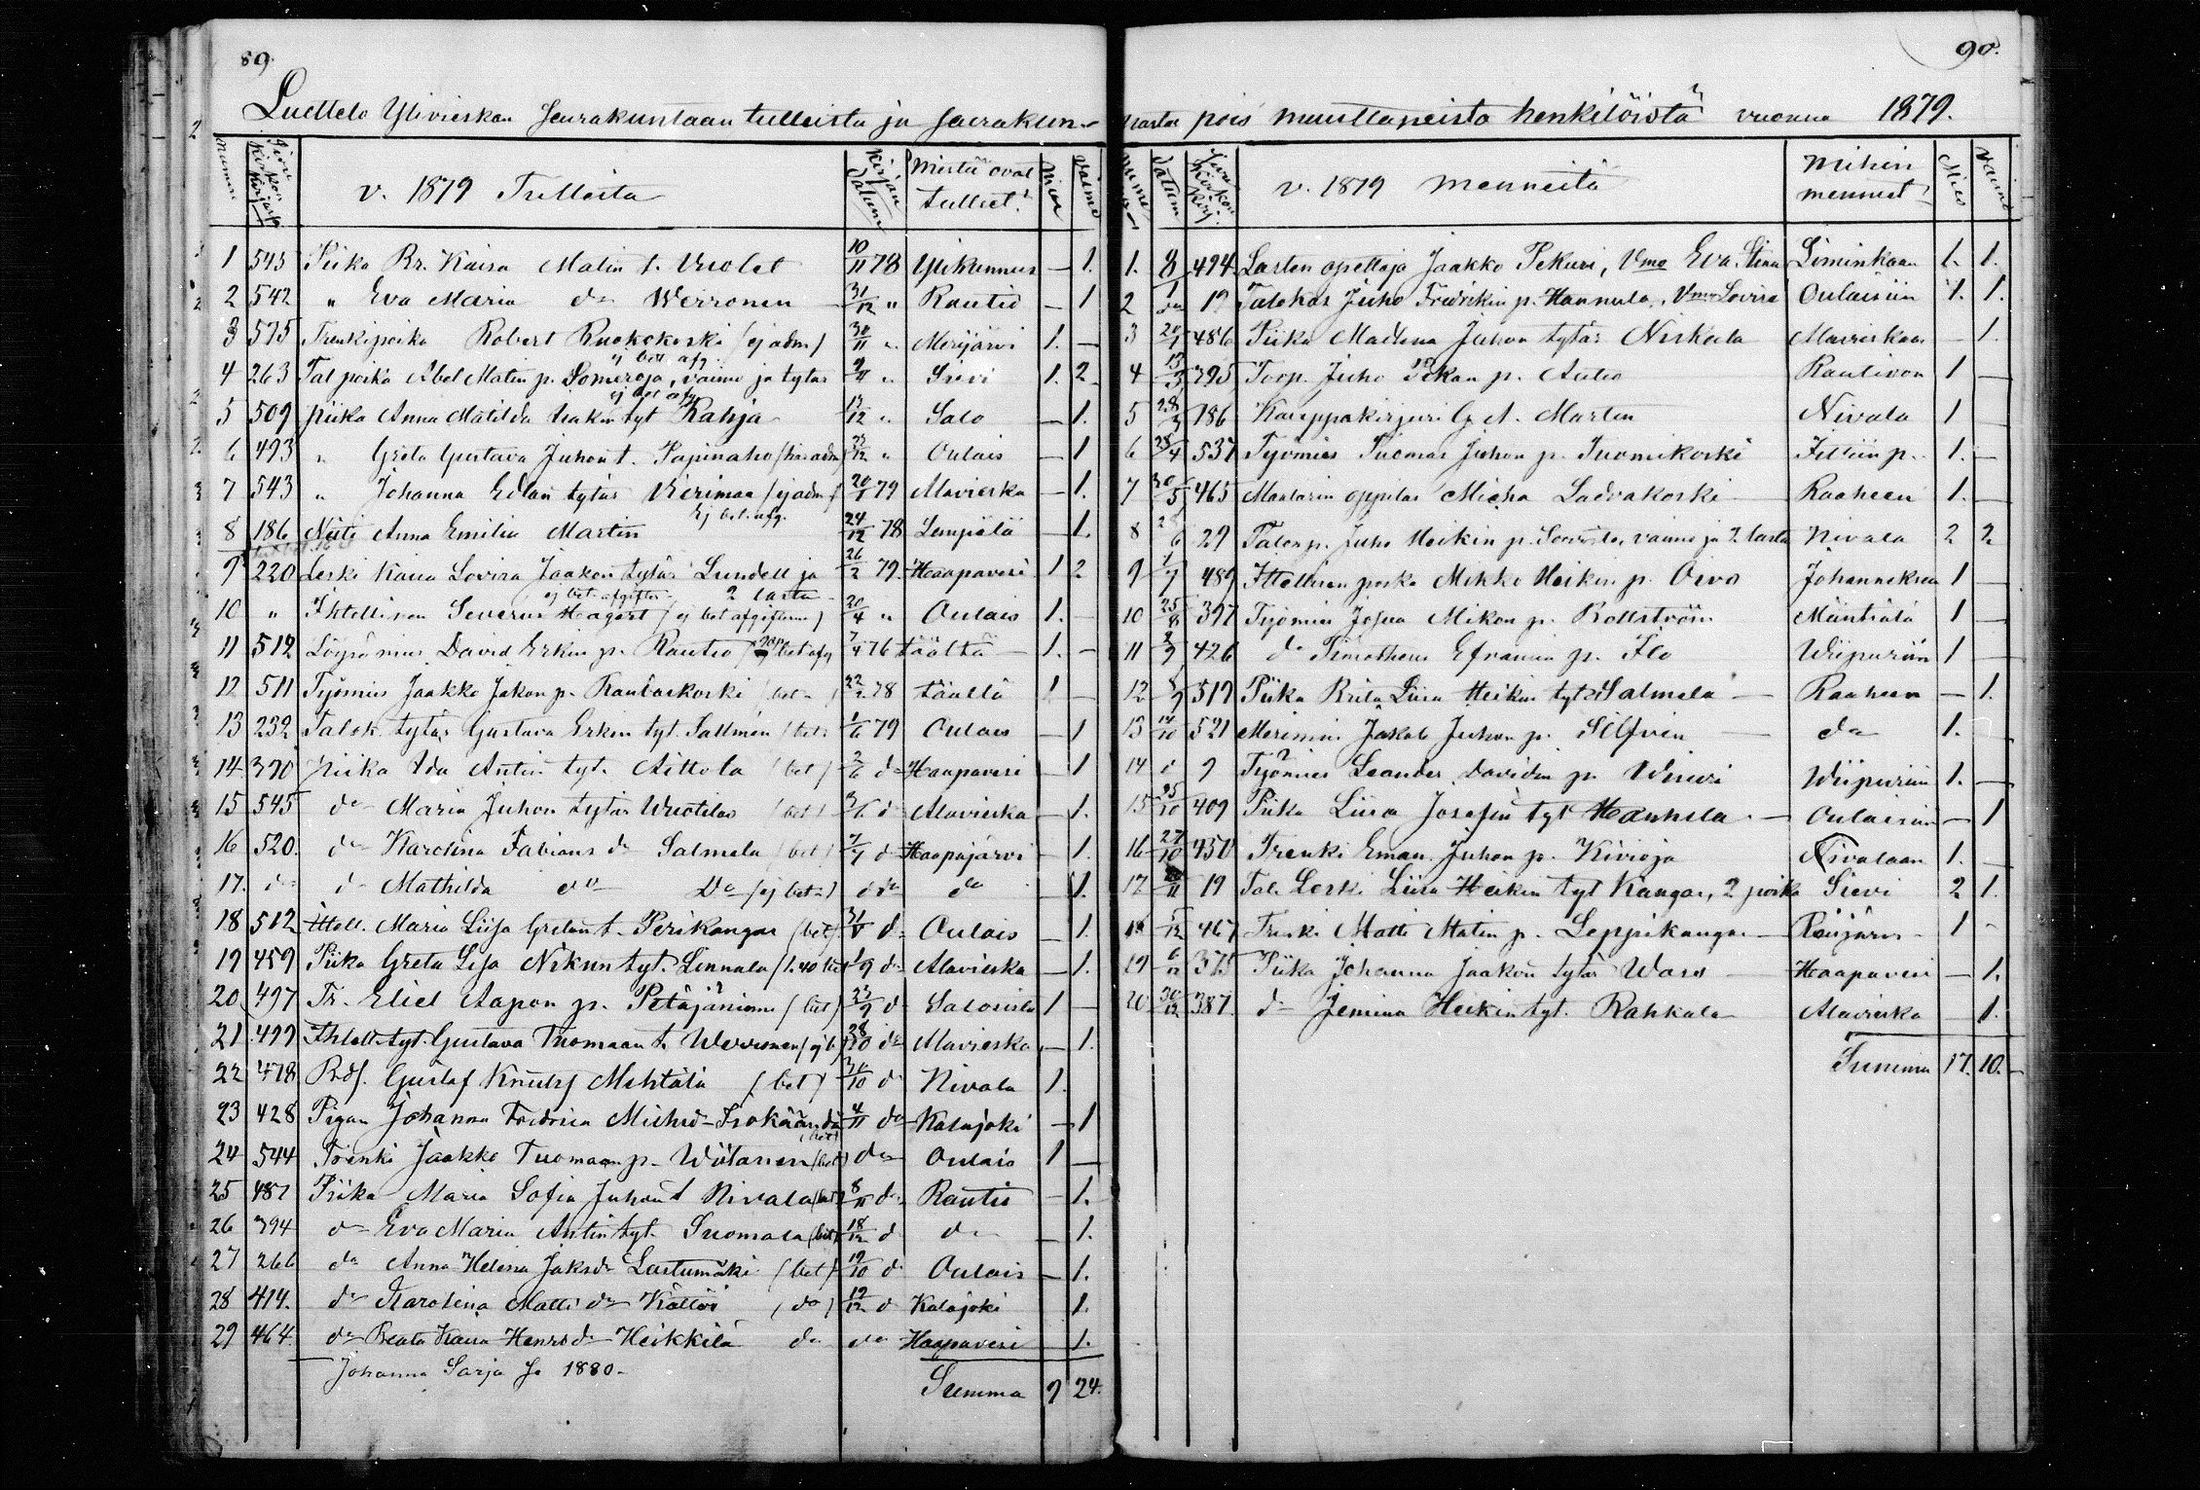 89.
90.
Luettelo Ylivieskan Seurakuntaan tulleista ja seurakun-
nasta pois muuttaneista henkilöistä vuonna 1879.
v. 1879 Tulleita
kirjan datum
Mistä ovat tulleet?
1 545 Piika Br. Kaisa Matin t. Vuolet 10/11 78 Ylikannus — 1.
2 542 " Eva Maria da Werronen 31/12 " Rautio — 1
3 575 Trenkipoika Robert Ruokokoski (ej adm) 30/11 " Merijärvi 1. —
ej bet afg.
4 263 Tal poika Abel Matin p. Someroja, vaimo ja tytär " Sievi 1. 2
ej bet afg
5 509 piika Anna Matilda tyt Rahja /12 " Salo — 1.
6 493 " Greta Gustava Juhon t. Papinaho " Oulais — 1
7 543 " Johanna Edlan tytär Kerimaa (ej adm) 20/1 79 Alavieska — 1.
Ej bet. afg.
8 186 Neiti Anna Emilia Martin 24/12 78 Lempälä — 1.
9 220 Leski Kaisa Lovisa Jaakon tytär Lundell ja 26/2 79 Haapavesi 1 2
ej bet. afgifter 2 lasta
10 " Ithellinen Severus Hagert (ej bet afgifterne) 20/4 " Oulais 1. —
11 512 David Erkin p. Rautio 7/4 76 täältä 1. —
12 511 Työmies Jaakko Jakon p. Rautaskoski (bet) 22/2 78 täältä 1 —
13 232 Talok. tytär Gustava Erkin tyt. Sallmén (bet) 1/6 79 Oulais — 1
14 390 piika Ida Antin tyt. Aittola (bet) 2/6 do Haapavesi — 1
15 545 do Maria Juhon tytär Wuotilas (bet) 3/6 d Alavieska — 1.
16 520. do Karolina Fabians do Salmela (bet) 7/7 d Haapajärvi — 1.
17. do do Mathilda do Do (ej bet.) d do do 1.
18 512 Ittell. Maria Liisa Gretan t. Perikangas (bet) 31/8 d Oulais — 1.
19 459 Piika Greta Lisa Nikun tyt. Linnala (1.40 bet) 1/9 do Alavieska — 1.
20. 497 Tr. Eliel Aapon p. Petäjäniemi (bet) 23/9 d Saloisista 1 —
21. 499 Ithlell. tyt. Gustava Tuomaan t. Werronen (ej b) 28/10 do Alavieska — 1.
22 478 Gustaf Knuts Mehtälä (bet) 30/10 d Nivala 1.
23 428 Pigan Johanna Fredrica Michsd. Isokääntä (bet) 4/11 do Kalajoki — 1
24 544 Trenki Jaakko Tuomaan p. Wiitanen (bet) do Oulais 1 —
25 487 Piika Maria Sofia Juhan t Nivala (bet) 8/11 do Rautio — 1.
26 394 do Eva Maria Antin tyt. Suomala (bet) 18/12 d do 1.
27 266 do Anna Helena Jaksdr Lastumäki (bet) 19/10 d Oulais — 1.
28 414. do Karolina Matts do Kättöi (do) 19/12 d Kalajoki 1.
29 464. do Beata Kaisa Henrsdr Heikkilä do do Haapavesi 1.
Johanna Sarja Jo 1880.
Summa 9 24.
v. 1879 Menneitä
Mihin mennet
Mies
1. 8/1 494 Lasten opettaja Jaakko Pekuri, Vmo Eva Stina Liminkaan 1. 1.
2 do 19 Talokas Juho Fredrikin p. Hannula, Vmo Lovisa Oulaisiin 1. 1.
3 20/1 486 Piika Madlena Juhon tytär Niskala Alavieskaan — 1.
4 13/3 395 Toop. Juho p. Autio Rautioon 1 —
5 28/3 186 Kauppakirjuri G. A. Martin Nivala 1 —
6 28/4 537 Työmies Tuomas Juhon p. Tuomikoski 1. —
7 30/5 465 Maalarin oppilas Micha Ladvakoski Raaheen 1. —
8 29 Talon p. Juho Heikin p. vaimo ja 2 lasta Nivala 2 2
9 1/7 489 Ittellinen poika Mikko Heikin p. Orvo Johanneksen 1 —
10 25/8 397 Työmies Josua Mikon p. Rollström Mäntsälä 1 —
11 426 do Timotheus Efraimin p. Ilo Wiipuriin 1 —
12 519 Piika Brita Liisa Heikin tyt. Salmela — Raaheen — 1.
13 14/10 521 Merimies Jakob Juhon p. Silfvin — do 1.
14 d 9 Työmies Leander Davidin p. Winuri Wiipuriin 1. —
15 25/10 409 Piika Liisa Josefin tyt Hanhela — Oulaisiin — 1
16 27/10 450 Trenki Eman. Juhon p. Kivioja Nivalaan 1. —
17 19 Tal. Leski Liisa Heikin tyt Kangas, 2 poika Sievi 2 1.
18 5/12 467 Trenki Matti Matin p. Leppikangas — 1 —
19 6/12 375 Piika Johanna Jaakon tytär Waro — Haapavesi — 1.
20 30/12 387. do Jemina Heikin tyt. Rahkala — Alavieska — 1.
Summa 17. 10.